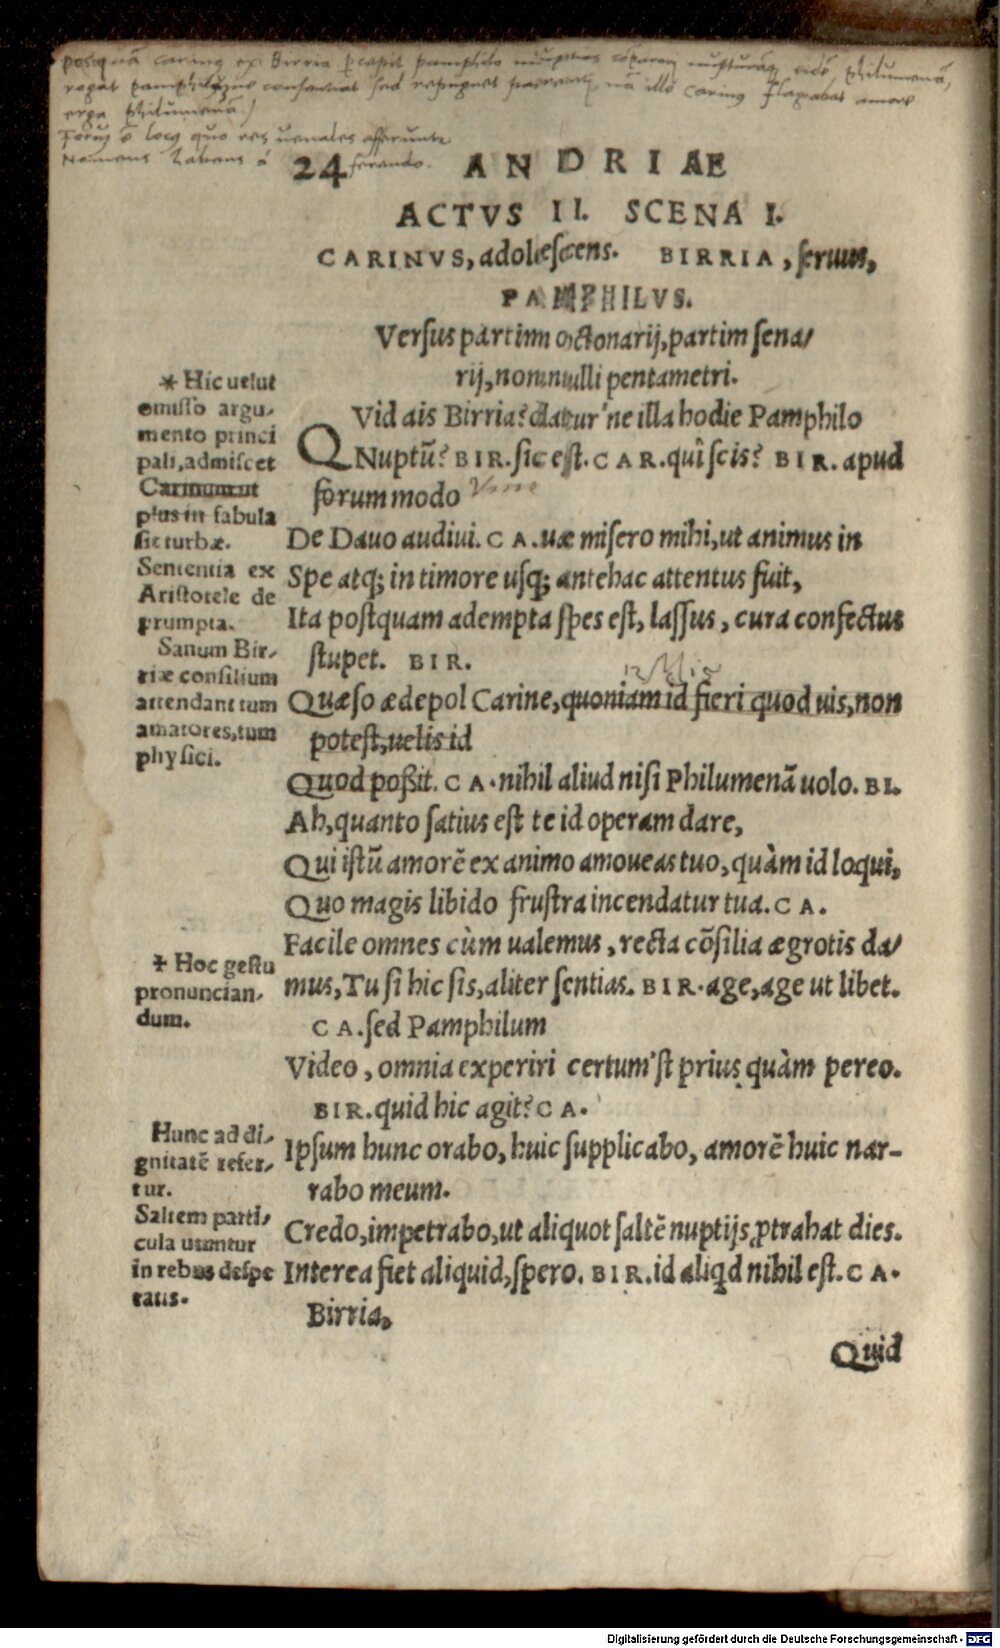 posquã carinus ex Birria
Forus ẽ locus quo res uenales afferunt
Nomens habens á ferendo.
24 ANDRIAE
ACTVS II. SCENA I.
CARINVS, adolescens. BIRRIA, seruus,
PAMPHILVS.
Versus partim octonarij, partim sena/
rij, nonnulli pentametri.
* Hic uelut
omisso argu-
mento princi
pali, admiscet
Carinum ut
plus in fabula
sit turbæ.
Sententia ex
Aristotele de
prumpta.
Sanum Bir-
riæ consilium
attendant tum
amatores, tum
physici.
QVid ais Birria? datur'ne illa hodie Pamphilo
Nuptũ? BIR. sic est. CAR. quî scis? BIR. apud
forum modo
De Dauo audiui. CA. uæ misero mihi, ut animus in
Spe atq; in timore usq; antehac attentus fuit,
Ita postquam adempta spes est, lassus, cura confectus
stupet. BIR.
Quæso ædepol Carine, quoniam id fieri quod uis, non
potest, uelis id
Quod poßit. CA. nihil aliud nisi Philumenã uolo. BI.
Ah, quanto satius est te id operam dare,
Qui istũ amorẽ ex animo amoueas tuo, quàm id loqui,
Quo magis libido frustra incendatur tua. CA.
Facile omnes cùm ualemus, recta cõsilia ægrotis da/
mus, Tu si hic sis, aliter sentias. BIR. age, age ut libet.
CA. sed Pamphilum
Video, omnia experiri certum'st prius quàm pereo.
BIR. quid hic agit? CA.
Ipsum hunc orabo, huic supplicabo, amorẽ huic nar-
rabo meum.
Credo, impetrabo, ut aliquot saltẽ nuptijs ꝓtrahat dies.
Interea fiet aliquid, spero. BIR. id aliqd nihil est. CA.
Birria,
* Hoc gestu
pronuncian-
dum.
Hunc ad di-
gnitatẽ refer-
tur.
Saltem parti-
cula utuntur
in rebus despe
ratis.
Quid
Digitalisierung gefördert durch die Deutsche Forschungsgemeinschaft - DFG